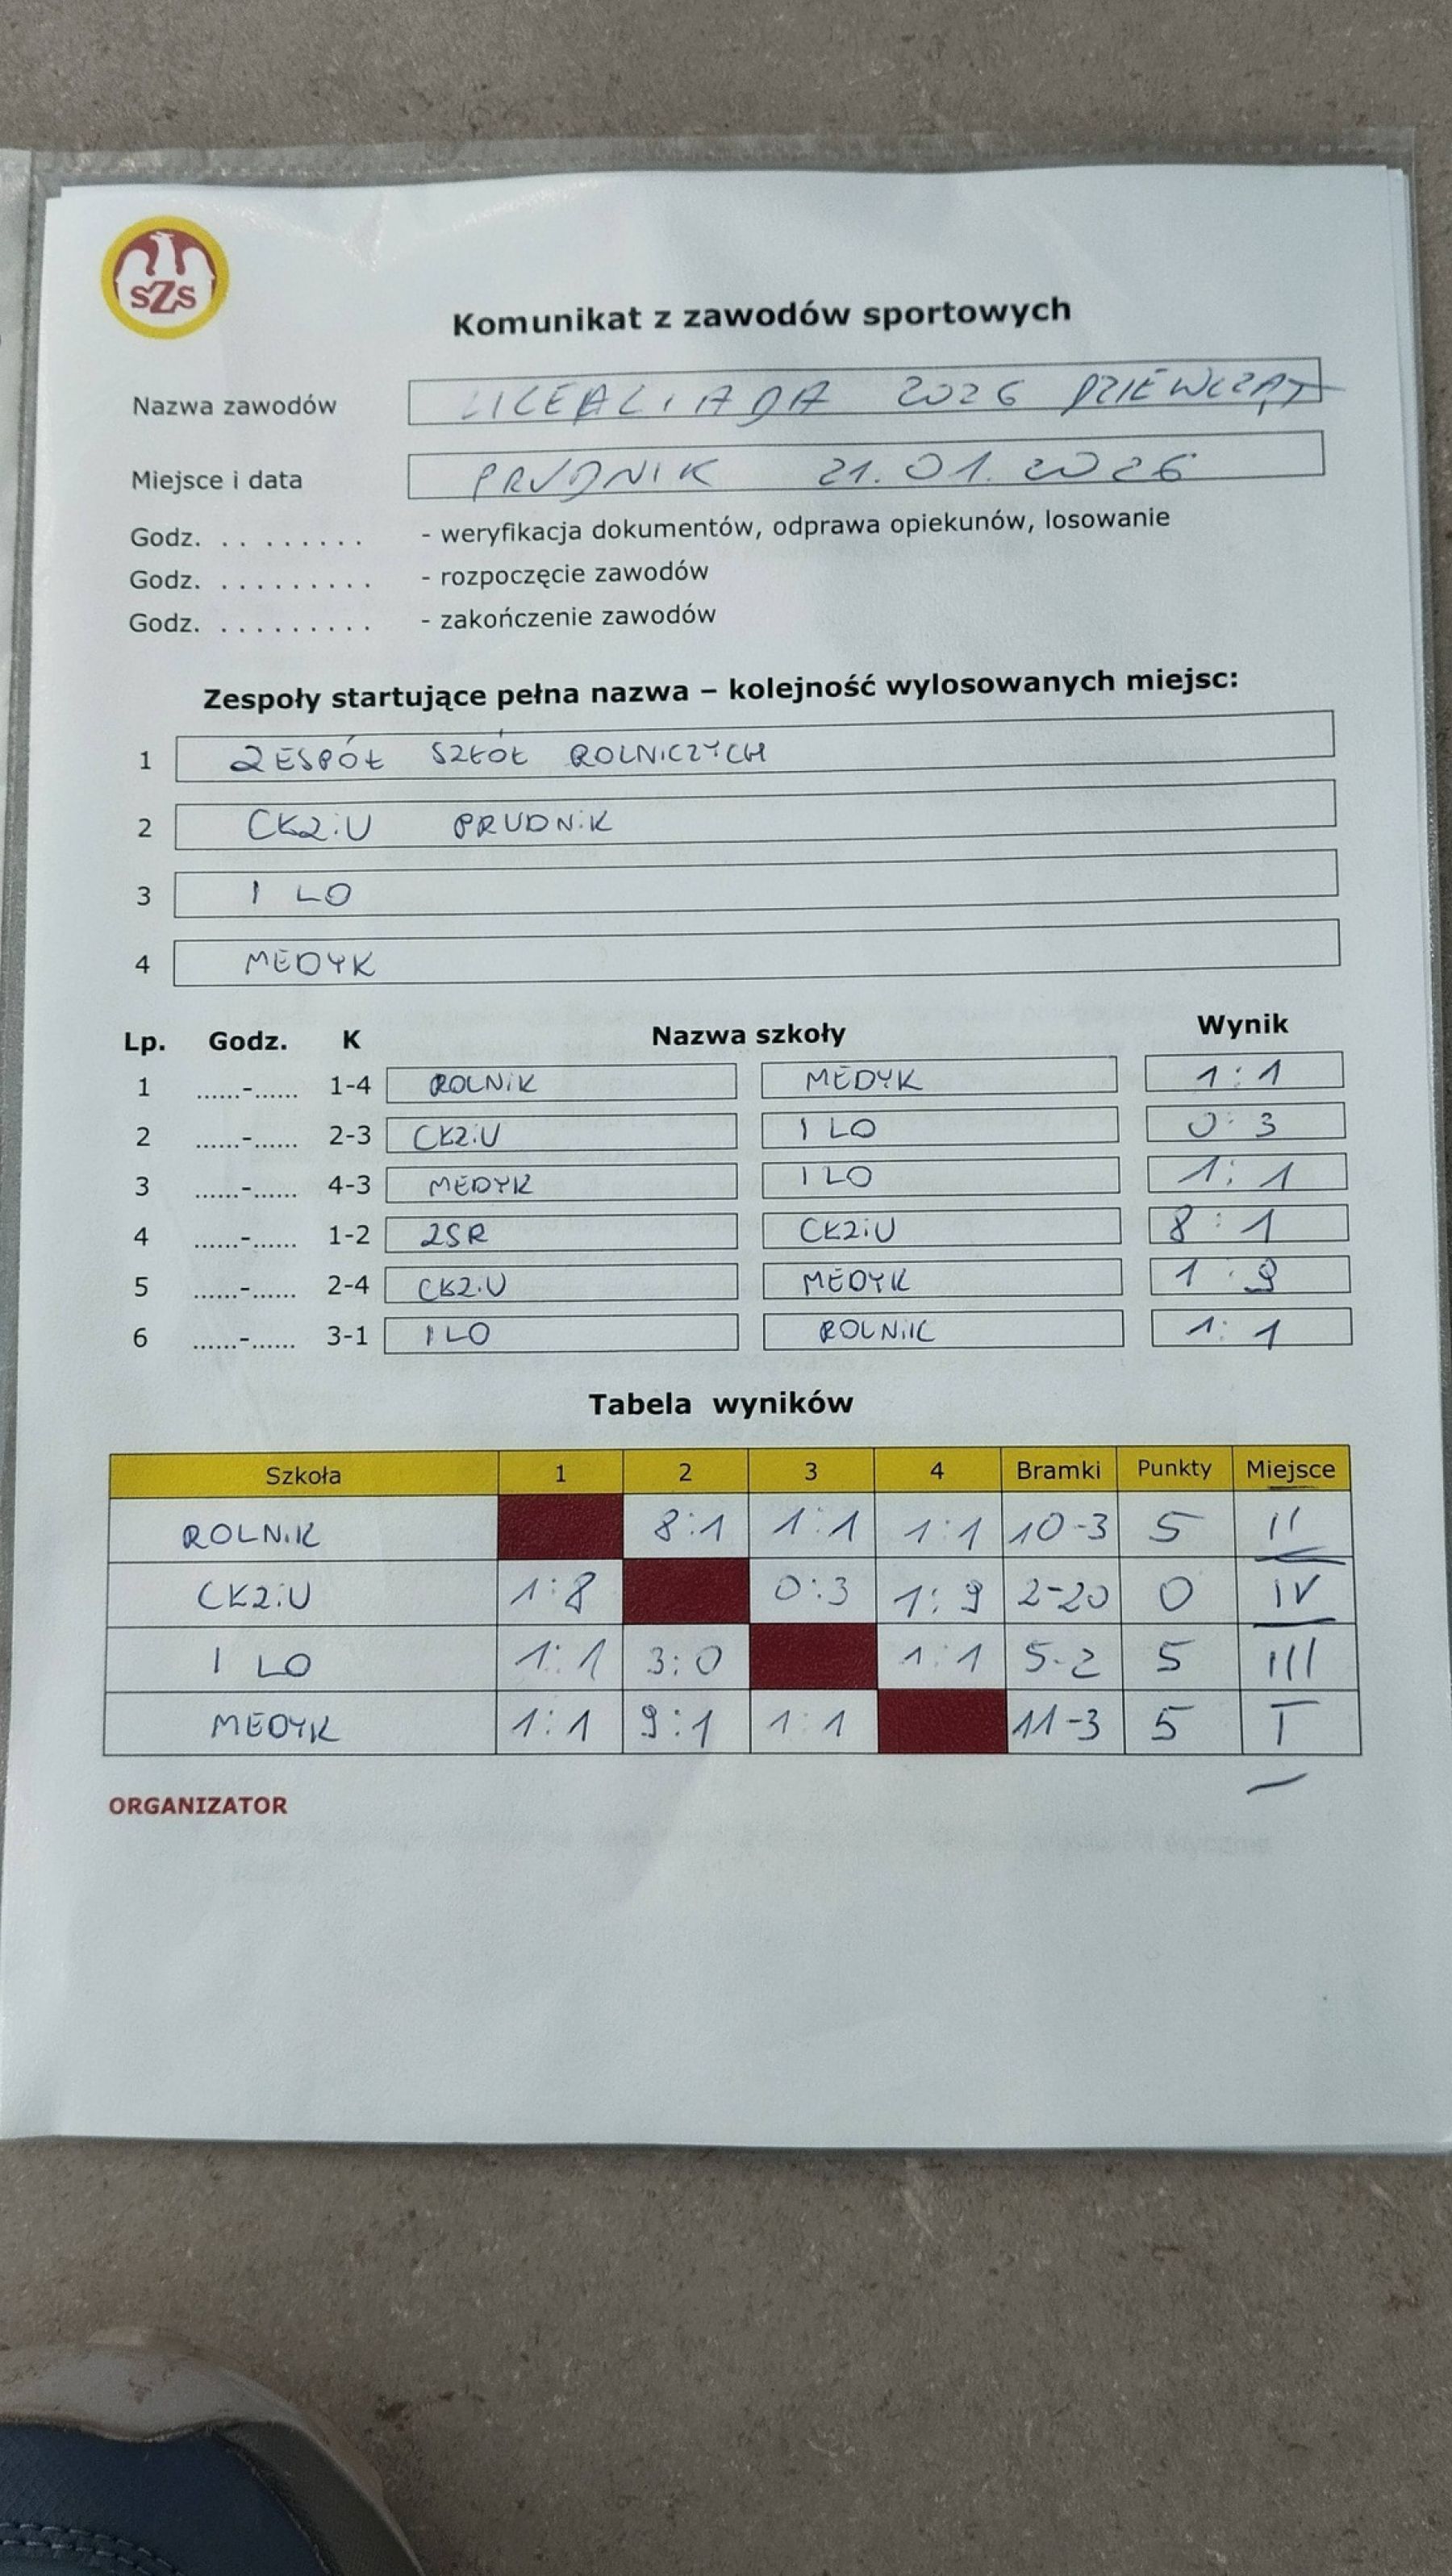 szs
Komunikat z zawodów sportowych
Nazwa zawodów LICEALIADA 2026 DZIEWCZĄT
Miejsce i data PRUDNIK 21.01.2026
Godz. . . . . . . . . - weryfikacja dokumentów, odprawa opiekunów, losowanie
Godz. . . . . . . . . . - rozpoczęcie zawodów
Godz. . . . . . . . . . - zakończenie zawodów
Zespoły startujące pełna nazwa – kolejność wylosowanych miejsc:
1 ZESPÓŁ SZKÓŁ ROLNICZYCH
2 CKZiU PRUDNiK
3 I LO
4 MEDYK
Lp. Godz. K Nazwa szkoły Wynik
1 ......-...... 1-4 ROLNiK MEDYK 1:1
2 ......-...... 2-3 CKZiU I LO 0:3
3 ......-...... 4-3 MEDYK I LO 1:1
4 ......-...... 1-2 ZSR CKZiU 8:1
5 ......-...... 2-4 CKZiU MEDYK 1:9
6 ......-...... 3-1 I LO ROLNiK 1:1
Tabela wyników
Szkoła 1 2 3 4 Bramki Punkty Miejsce
ROLNiK 8:1 1:1 1:1 10-3 5 II
CKZiU 1:8 0:3 1:9 2-20 0 IV
I LO 1:1 3:0 1:1 5-2 5 III
MEDYK 1:1 9:1 1:1 11-3 5 I
ORGANIZATOR